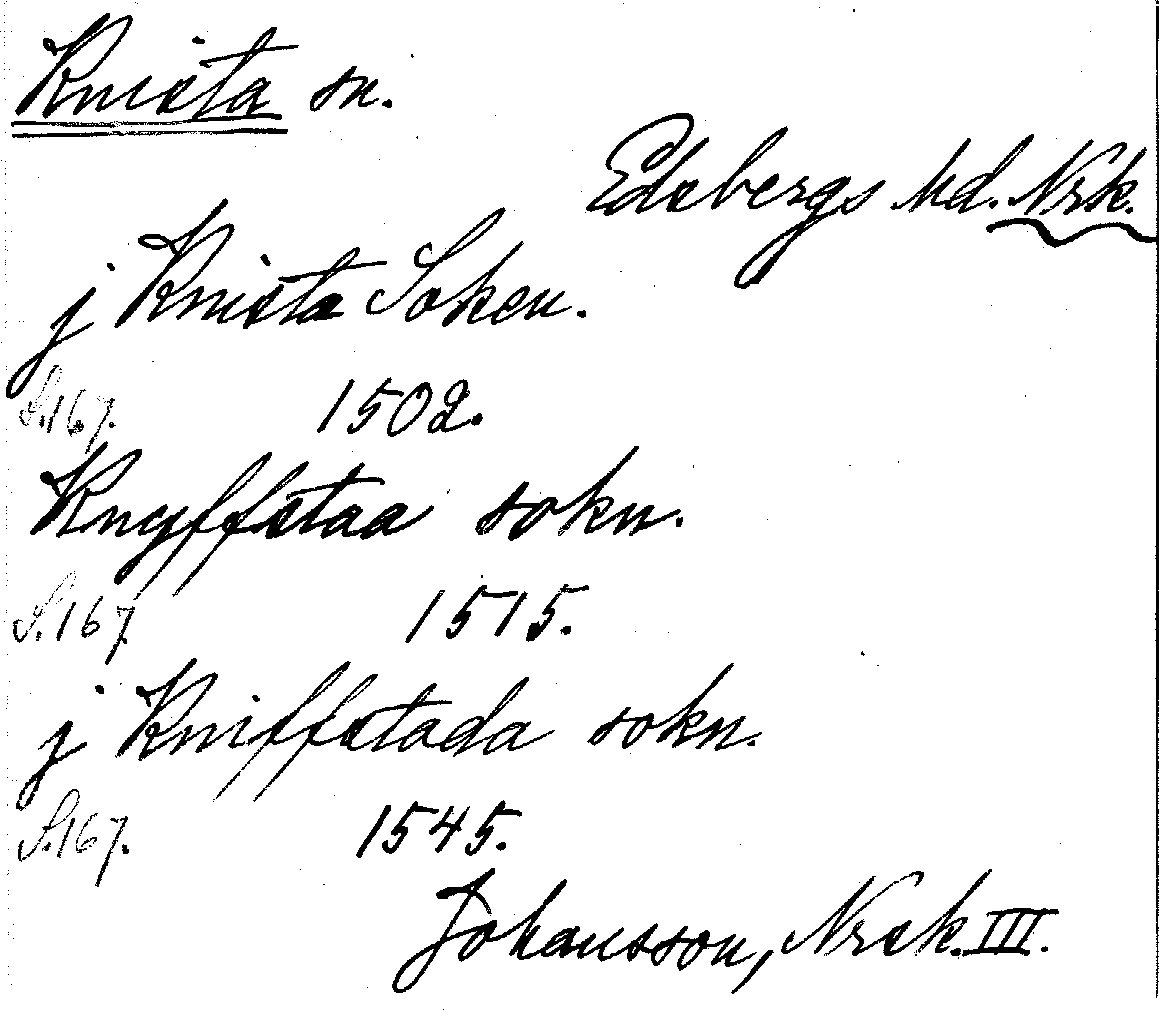 Knista sn.
Edsbergs hd. Nrk.
j Knista Soken.
S. 167. 1502.
Knyffstaa sokn.
S. 167 1515.
j Kniffstada sokn.
S. 167. 1545.
Johansson, Nrsk. III.